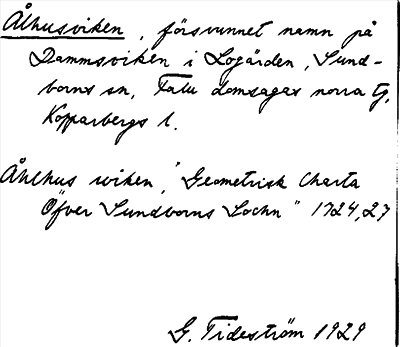 Ålhusviken, försvunnet namn på
Dammsviken i Logården, Sund-
borns sn, Falu domsagas norra tg,
Kopparbergs l.
Åhlhus wiken, "Geometrisk Charta
Öfver Sundborns Sochn" 1724, 27
G. Tideström 1929